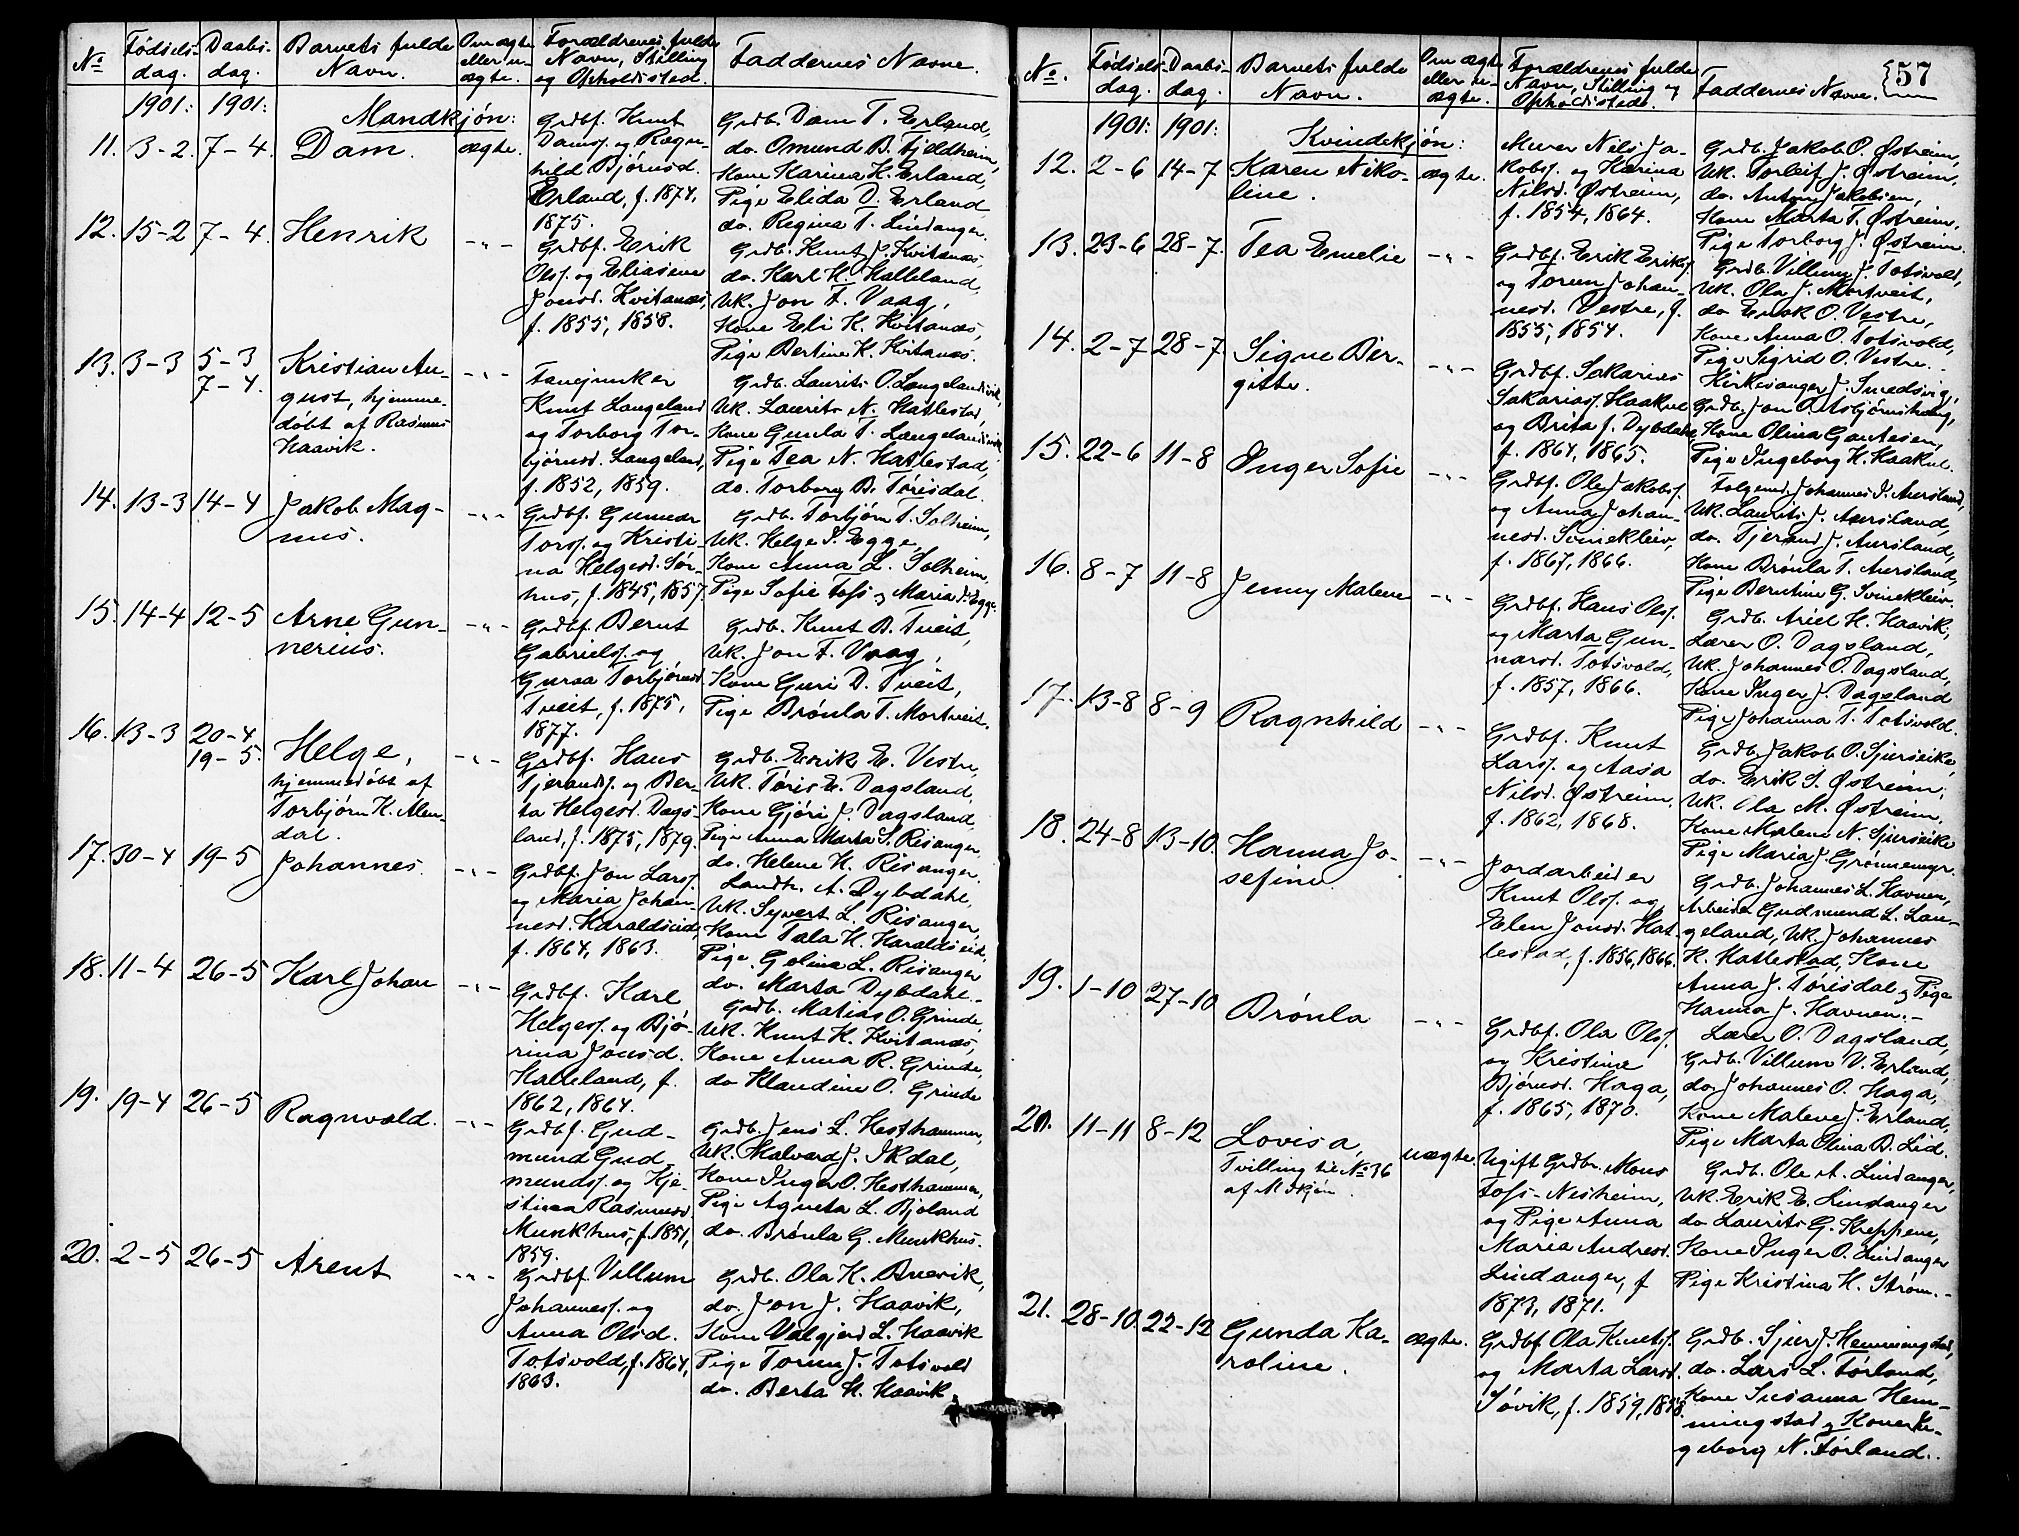 No
Fødsels-
dag.
Daabs-
dag.
Barnets fulde
Navn.
Om ægte
eller u-
ægte.
Forældrenes fulde
Navn, Stilling
og Opholdssted.
Faddernes Navne.
1901: 1901:
Mandkjøn:
11. 3-2. 7-4. Dam. ægte.
Grdbf. Knut
Damsf. og Ragn-
hild Bjørnsd.
Erland, f. 1874,
1875.
Grdb. Dam T. Erland,
do. Omund B. Fjeldheim,
Kone Karina K. Erland,
Pige Elida D. Erland
do. Regina T. Lindanger.
12. 15-2 7-4. Henrik -"-
Grdbf. Erik
Olsf. og Eliasene
Jonsd. Kvitanæs,
f. 1855, 1858.
Grdb. Knut J. Kvitanæs,
do. Karl K. Halleland,
Uk. Jon F. Vaag,
Kone Eli K. Kvitanæs,
Pige Bertine K. Kvitanæs.
13. 3-3 5-3
7-4.
Kristian Au-
gust, hjemme-
døbt af Rasmus
Haavik.
-"-
Fanejunker
Knut Langeland
og Torborg Tor-
bjørnsd. Langeland,
f. 1852, 1859.
Grdb. Laurits O. Langelandsvik,
Uk. Laurits N. Hatlestad,
Kone Gunla T. Langelandsvik,
Pige Tea N. Hatlestad,
do. Torborg B. Tørisdal.
14. 13-3 14-4 Jakob Mag-
nus.
-"-
Grdbf. Gunnar
Torsf. og Kristi-
na Helgesd. Sør-
hus, f. 1845, 1857.
Grdb. Torbjørn T. Solheim,
Uk. Helge I. Egge,
Kone Anna L. Solheim,
Pige Sofie Foss og Maria I. Egge.
15. 14-4 12-5 Arne Gun-
nerius.
-"-
Grdbf. Bernt
Gabrielsf. og
Guroa Torbjørnsd.
Tveit, f. 1875,
1877.
Grdb. Knut B. Tveit,
Uk. Jon F. Vaag,
Kone Guri D. Tveit,
Pige Brønla T. Mortveit.
16. 13-3 20-4
19-5.
Helge,
hjemmedøbt af
Torbjørn K. Alen-
dal.
-"-
Grdbf. Hans
Tjerandsf. og Ber-
ta Helgesd. Dags-
land, f. 1875, 1879.
Grdb. Erik E. Vestre,
Uk. Tøris E. Dagsland,
Kone Gjøri J. Dagsland,
Pige Anna Marta S. Risanger
do. Helene K. Risanger.
17. 30-4 19-5 Johannes. -"-
Grdbf. Jon Larsf.
og Maria Johan-
nesd. Haraldseid,
f. 1864, 1863.
Landh. A. Dybdahl,
Uk. Syvert L. Risanger,
Kone Tala K. Haraldseid,
Pige Golina L. Risanger
do. Marta Dybdahl.
18. 11-4 26-5 Karl Johan -"-
Grdbf. Karl
Helgesf. og Bjø-
rina Jonsd.
Halleland, f.
1862, 1864.
Grdb. Matias O. Grinde,
Uk. Knut K. Kvitanæs,
Kone Anna R. Grinde,
do Klaudine O. Grinde
19. 19-4 26-5 Ragnvald. -"-
Grdbf. Gud-
mund Gud-
mundsf. og Kje-
stina Rasmusd.
Munkhus, f. 1851,
1859.
Grdb. Jens L. Hesthammer,
Uk. Halvard J. Ikdal,
Kone Inger O. Hesthammer,
Pige Agneta L. Bjoland
do. Brønla G. Munkhus.
20. 2-5 26-5 Arent -"-
Grdbf. Villum
Johannesf. og
Anna Olsd.
Totsvold, f. 1864,
1863.
Grdb. Ola K. Brevik,
do. Jon J. Haavik,
Kone Valgjerd L. Haavik
Pige Torina J. Totsvold
do. Berta K. Haavik
57
No.
Fødsels-
dag.
Daabs-
dag.
Barnets fulde
Navn.
Om ægte
eller u-
ægte.
Forældrenes fulde
Navn, Stilling og
Opholdsstede.
Faddernes Navne.
1901: 1901:
Kvindekjøn:
12. 2-6 14-7 Karen Niko-
line.
ægte.
Murer Nils Ja-
kobsf. og Karina
Nilsd. Østreim,
f. 1854, 1864.
Grdb. Jakob O. Østreim,
Uk. Torleif J. Østreim,
do. Anton Jakobsen,
Kone Marta T. Østreim,
Pige Torborg J. Østreim.
13. 23-6 28-7. Tea Emelie -"-
Grdbf. Erik Eriksf.
og Torun Johan-
nesd. Vestre, f.
1855, 1854.
Grdb. Villum J. Totsvold,
Uk. Ola J. Mortveit,
do Enok O. Vestre,
Kone Anna O. Totsvold,
Pige Sigrid O. Vestre.
14. 2-7 28-7. Signe Bir-
gitte.
-"-
Grdbf. Sakarias
Sakariasf. Haakul
og Brita f. Dybdahl,
f. 1864, 1865.
Kirkesanger J. Smedsvig,
Grdb. Jon O. Asbjørnshaug,
Kone Olina Gautesen,
Pige Ingeborg K. Haakul.
15. 22-6 11-8 Inger Sofie -"-
Grdbf. Ole Jakobsf.
og Anna Johan-
nesd. Svinekleiv,
f. 1867, 1866.
Folgemd. Johannes I. Aursland,
Uk. Laurits J. Aursland,
do. Tjerand J. Aursland,
Kone Brønla T. Aursland,
Pige Berntine G. Svinekleiv.
16. 8-7 11-8 Jenny Malene -"-
Grdbf. Hans Olsf.
og Marta Gun-
narsd. Totsvold,
f. 1857, 1866.
Grdb. Ariel H. Haavik,
Lærer O. Dagsland,
Uk. Johannes O. Dagsland,
Kone Inger J. Dagsland
Pige Johanna T. Totsvold.
17. 13-8 8-9 Ragnhild -"-
Grdbf. Knut
Larsf. og Aasa
Nilsd. Østreim,
f. 1862, 1868.
Grdb. Jakob O. Sjurseike,
do. Erik S. Østreim,
Uk. Ola M. Østreim,
Kone Malene N. Sjurseike
Pige Maria J. Grønnemyr.
18. 24-8 13-10. Hanna Jo-
sefine.
-"-
Jordarbeider
Knut Olsf. og
Elen Jonsd. Hat-
lestad, f. 1856, 1866.
Grdb. Johannes L. Havnen,
Arbeider Gudmund L. Lan-
geland, Uk. Johannes
K. Hatlestad, Kone
Anna J. Tørisdal og Pige
Hanna J. Havnen.-
19. 1-10 27-10 Brønla -"-
Grdbf. Ola Olsf.
og Kristine
Bjørnsd. Haga,
f. 1865, 1870.
Lærer O. Dagsland,
Grdb. Villum V. Erland,
do. Johannes O. Haga,
Kone Malene J. Erland,
Pige Marta Olina B. Lid.
20. 11-11 8-12 Lovisa,
Tvilling til No 36
af M.kjøn.
uægte.
Ugift Grdbr. Mons
Foss-Nesheim,
og Pige Anna
Maria Andresd.
Lindanger, f
1873, 1871.
Grdb. Ole A. Lindanger,
Uk. Erik E. Lindanger
do Laurits G. Kreppene,
Kone Inger O. Lindanger
Pige Kristina K. Strøm.-
21. 28-10. 22-12 Gunda Ka-
roline.
ægte.
Grdbf Ola Knutsf.
og Marta Larsd.
Søvik, f. 1859, 1858.
Grdb. Sjur J. Hemmingstad,
do. Lars L. Førland,
Kone Susanna Hem-
mingstad og Kone In-
geborg N. Førland.